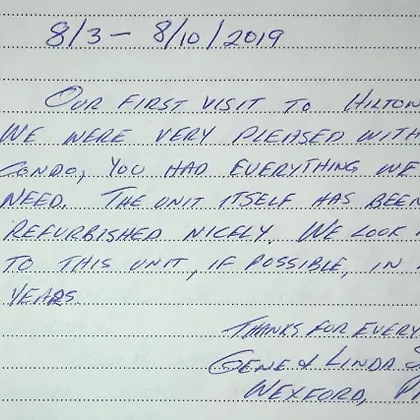 8/3 - 8/10/2019
OUR FIRST VISIT TO HILTON
WE WERE VERY PLEASED WITH
CONDO, YOU HAD EVERYTHING WE
NEED. THE UNIT ITSELF HAS BEEN
REFURBISHED NICELY. WE LOOK
TO THIS UNIT, IF POSSIBLE, IN
YEARS.
THANKS FOR EVERY
GENE & LINDA
WEXFORD, P